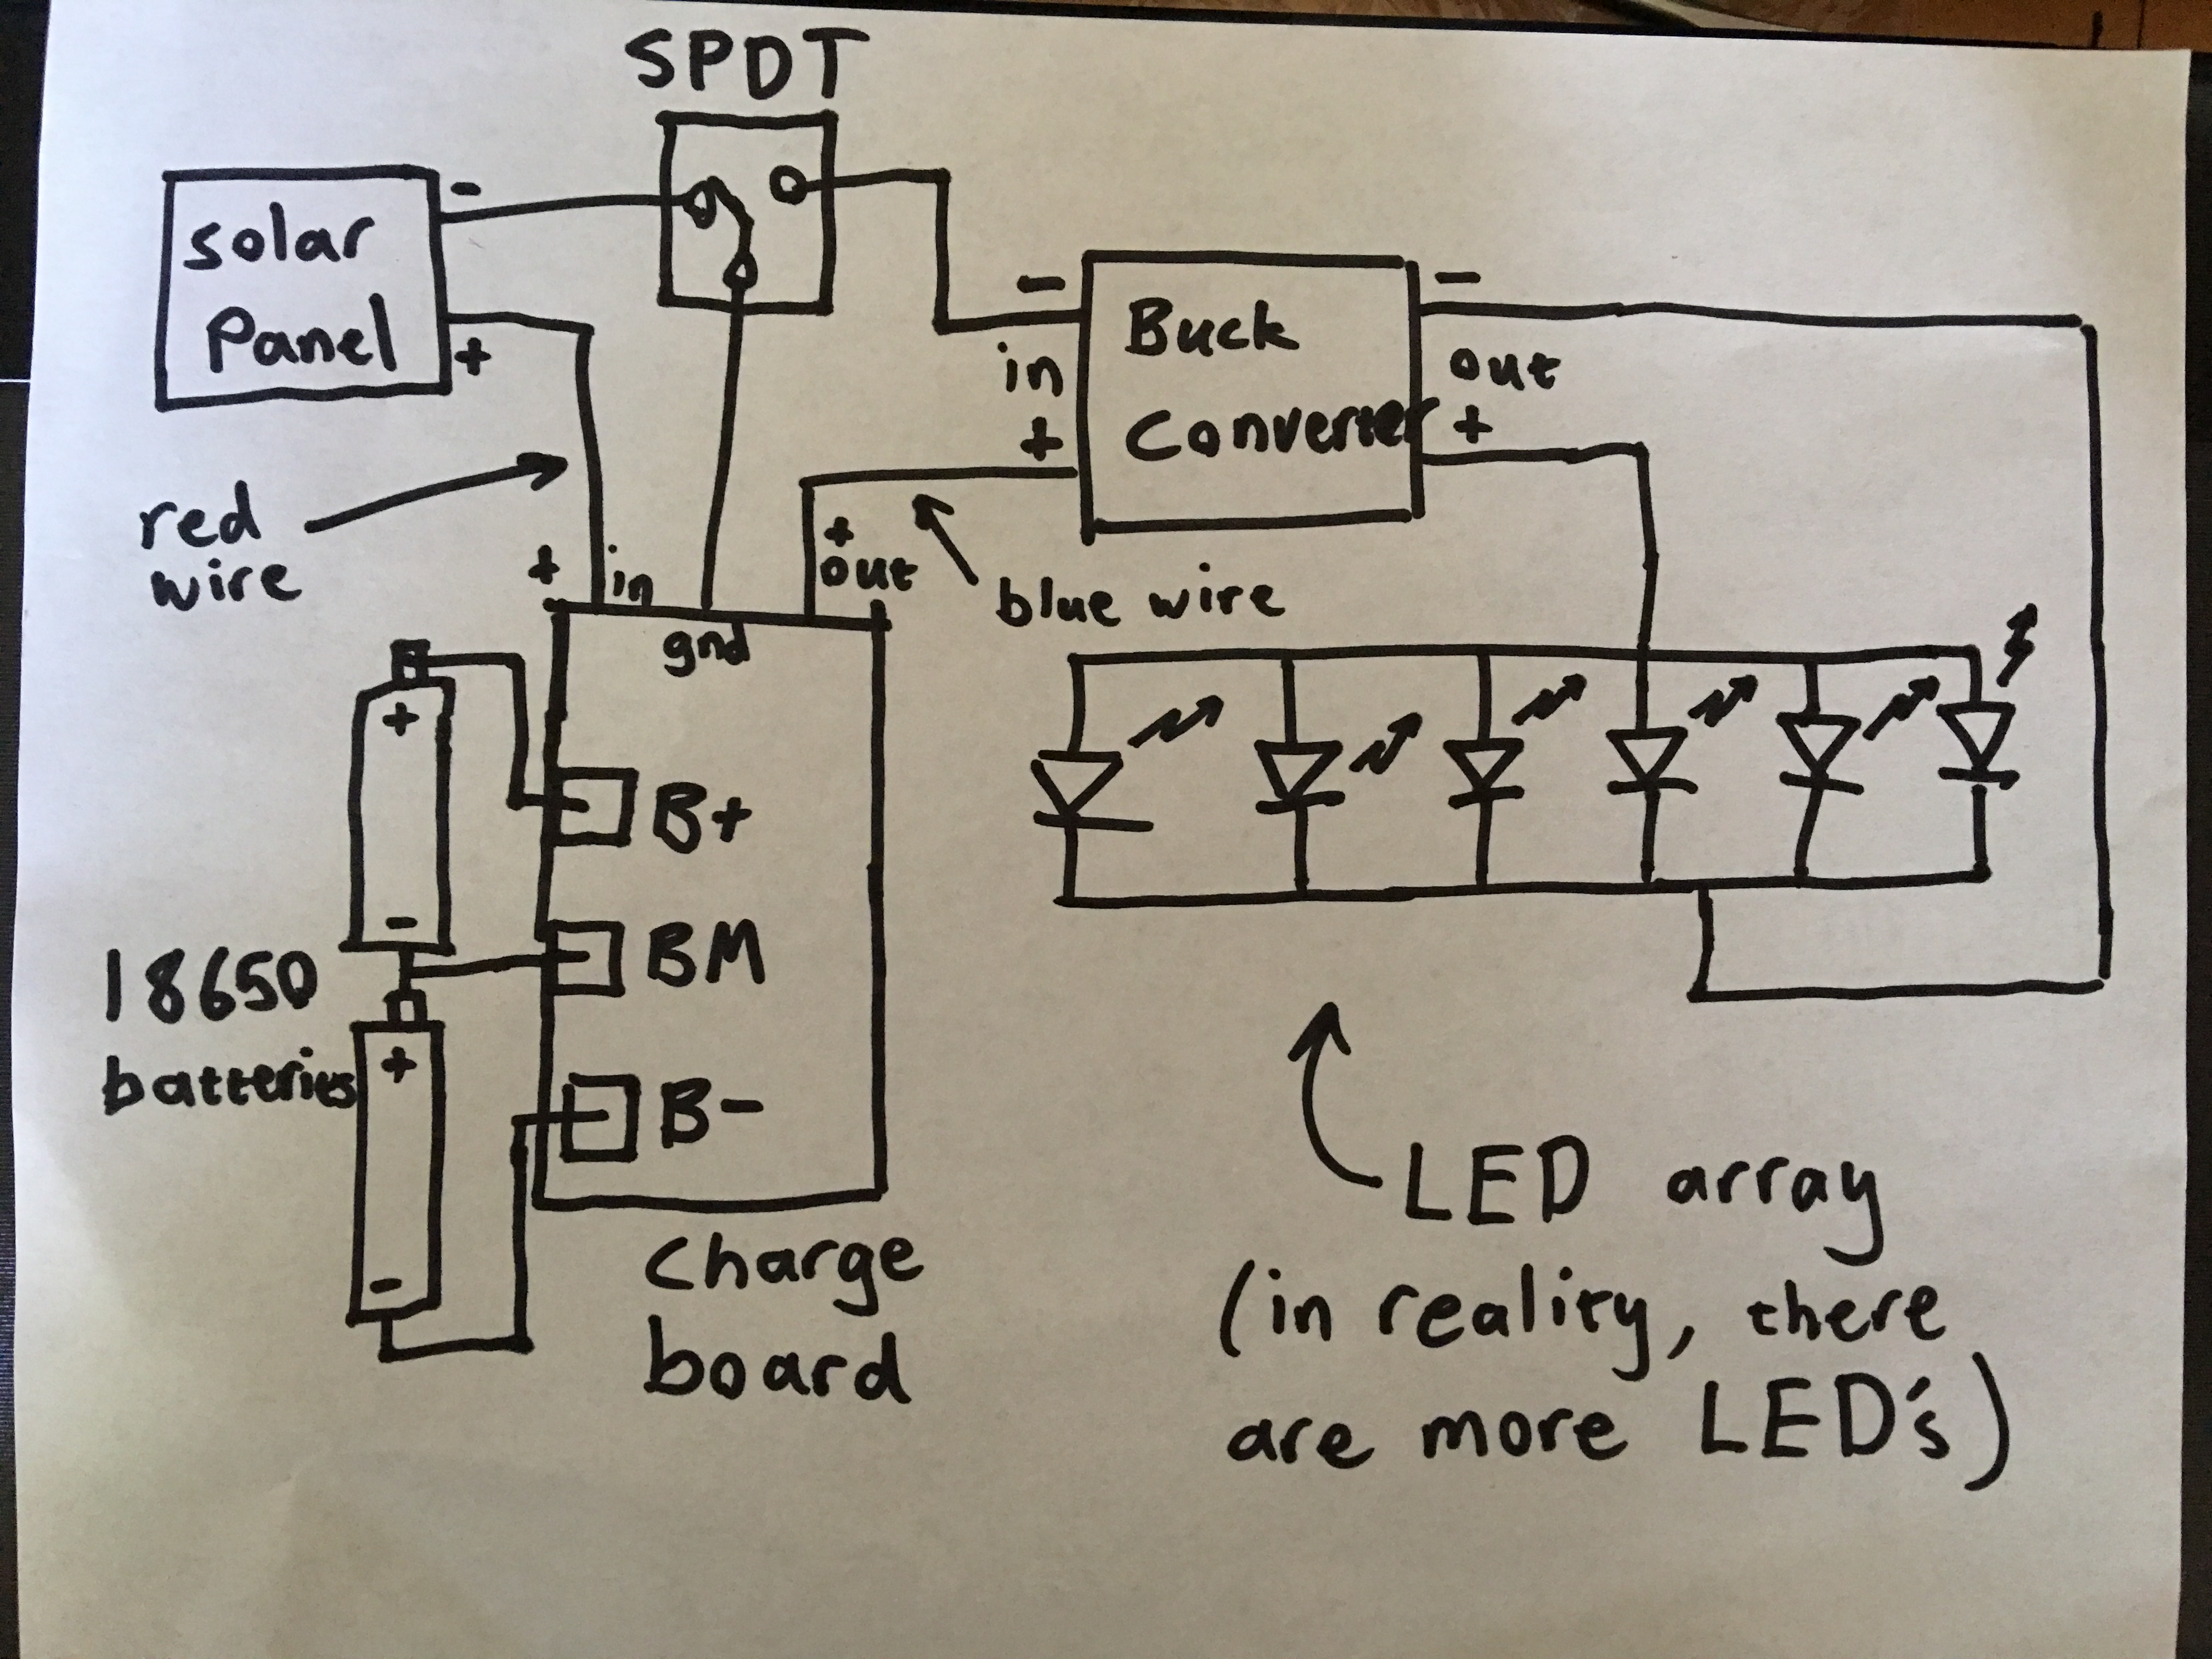 SPDT
-
solar
Panel
+
-
in
+
Buck
Converter
-
out
+
red
wire
+ in
gnd
+
out
blue wire
+
-
18650
batteries
+
-
B+
BM
B-
Charge
board
LED array
(in reality, there
are more LED's)